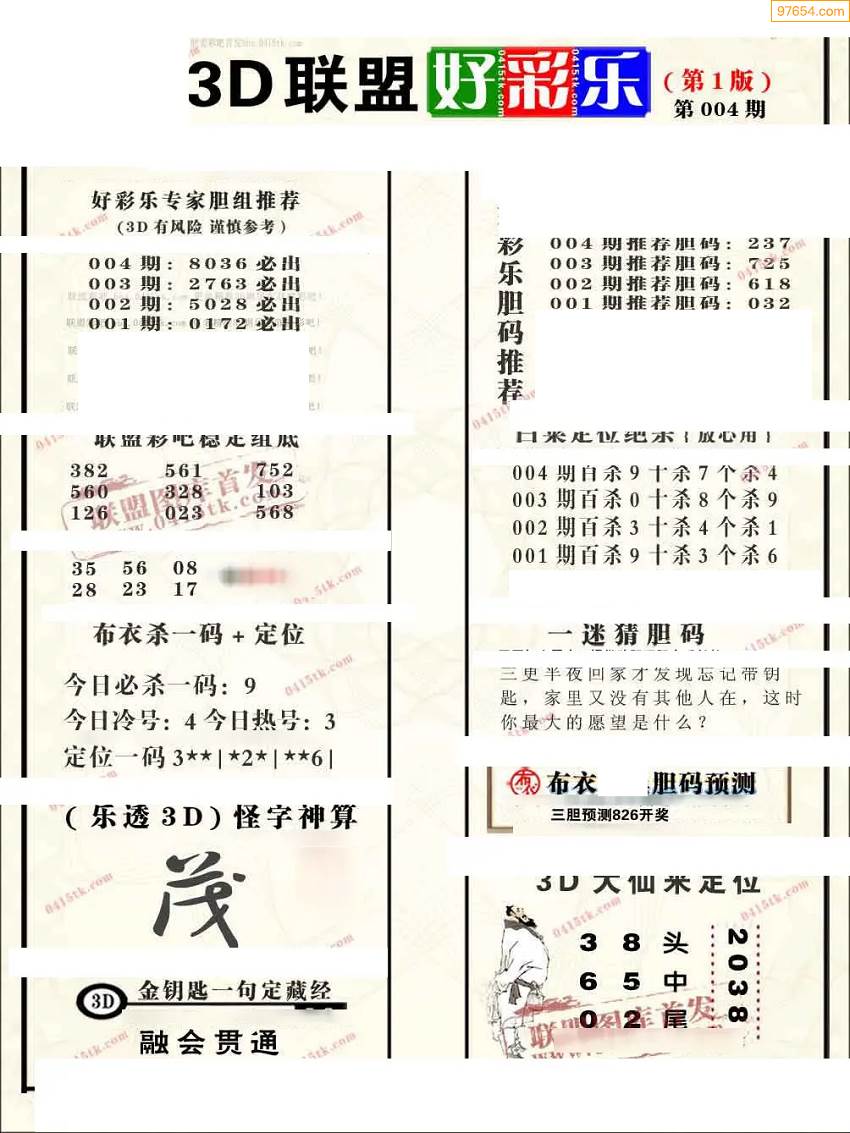 97654.com
3D联盟好彩乐
(第1版)
第004期
好彩乐专家胆组推荐
(3D有风险 谨慎参考)
004期: 8036必出
003期: 2763必出
002期: 5028必出
001期: 0172必出
彩乐胆码推荐
004期推荐胆码: 237
003期推荐胆码: 725
002期推荐胆码: 618
001期推荐胆码: 032
联盟彩吧稳定组底
382 561 752
560 328 103
126 023 568
35 56 08
28 23 17
004期百杀9十杀7个杀4
003期百杀0十杀8个杀9
002期百杀3十杀4个杀1
001期百杀9十杀3个杀6
布衣杀一码+定位
今日必杀一码: 9
今日冷号: 4 今日热号: 3
定位一码3**|*2*|**6|
一迷猜胆码
三更半夜回家才发现忘记带钥
匙，家里又没有其他人在，这时
你最大的愿望是什么？
布衣 胆码预测
三胆预测826开奖
(乐透3D)怪字神算
茂
3D大仙来定位
3 8 头
6 5 中
0 2 尾
2038
3D 金钥匙一句定藏经
融会贯通
联盟图库首发
0415tk.com